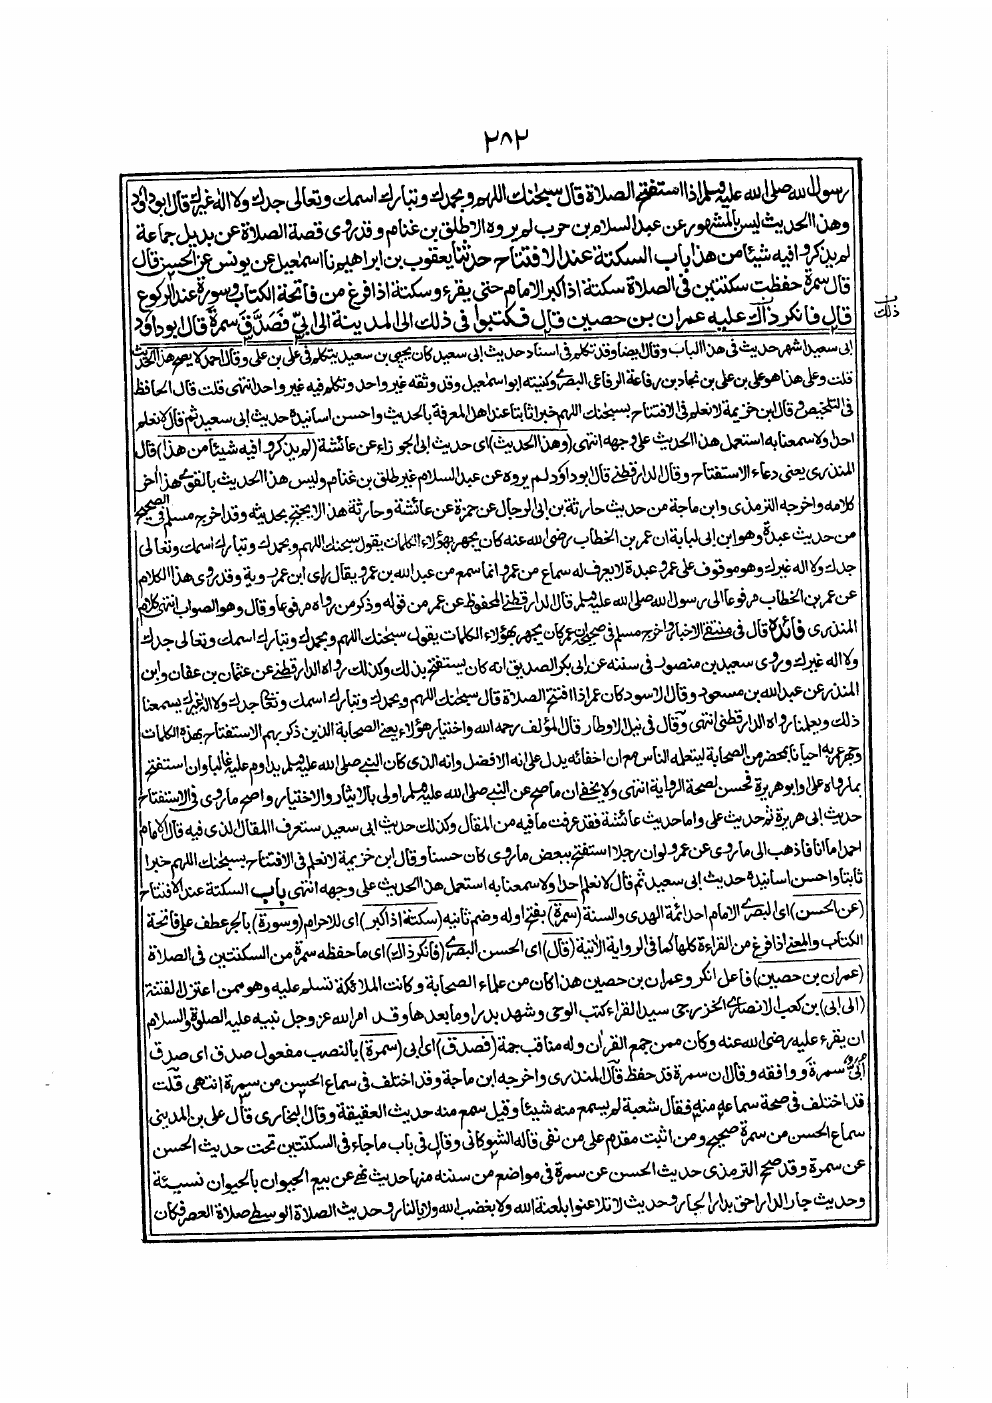 ٢٨٢
رسول الله صلى الله عليه وسلم اذا استفتح الصلاة قال سبحنك اللهم وبحمدك وتبارك اسمك وتعالى جدك ولا اله غيرك قال ابوداود
وهذا الحديث ليس بالمشهور عن عبد السلام بن حرب لم يروه الا طلق بن غنام وقد روى قصة الصلاة عن بديل جماعة
لم يذكروا فيه شيئا من هذا باب السكتة عند الافتتاح حدثنا يعقوب بن ابراهيم نا اسمعيل عن يونس عن الحسن قال
قال سمرة حفظت سكتتين فى الصلاة سكتة اذا كبر الامام حتى يقرء وسكتة اذا فرغ من فاتحة الكتاب وسورة عند الركوع
قال فانكر ذاك عليه عمران بن حصين قال فكتبوا فى ذلك الى المدينة الى ابى فصدق سمرة قال ابوداود
ذلك
ابى سعيد اشهر حديث فى هذا الباب وقال ايضا وقد تكلم فى اسناد حديث ابى سعيد كان يحيى بن سعيد يتكلم فى على بن على وقال احمد لا يصح هذا الحديث
قلت وعلى هذا هو على بن على بن نجاد بن رفاعة الرفاعى البصرى وكنيته ابو اسمعيل وقد وثقه غير واحد وتكلم فيه غير واحد انتهى قلت قال الحافظ
فى التلخيص وقال ابن خزيمة لا نعلم فى الافتتاح بسبحنك اللهم خبرا ثابتا عند اهل المعرفة بالحديث واحسن اسانيده حديث ابى سعيد ثم قال لا نعلم
احدا ولا سمعنا به استعمل هذا الحديث على وجهه انتهى (وهذا الحديث) اى حديث ابى الجوزاء عن عائشة (لم يذكروا فيه شيئا من هذا) قال
المنذرى يعنى دعاء الاستفتاح وقال الدارقطنى قال ابوداود لم يروه عن عبد السلام غير طلق بن غنام وليس هذا الحديث بالقوى هذا آخر
كلامه واخرجه الترمذى وابن ماجة من حديث حارثة بن ابى الرجال عن عمرة عن عائشة وحارثة هذا لا يحتج بحديثه وقد اخرج مسلم فى الصحيح
من حديث عبدة وهو ابن ابى لبابة ان عمر بن الخطاب رضى الله عنه كان يجهر بهؤلاء الكلمات يقول سبحنك اللهم وبحمدك وتبارك اسمك وتعالى
جدك ولا اله غيرك وهو موقوف على عمر وعبدة لا يعرف له سماع من عمر وانما سمع من عبد الله بن عمر ويقال راى ابن عمر روية وقد روى هذا الكلام
عن عمر بن الخطاب مرفوعا الى رسول الله صلى الله عليه وسلم قال الدارقطنى المحفوظ عن عمر من قوله وذكر من رواه مرفوعا وقال وهو الصواب انتهى كلام
المنذرى فائدة قال فى منتقى الاخبار واخرج مسلم فى صحيحه ان عمر كان يجهر بهؤلاء الكلمات يقول سبحنك اللهم وبحمدك وتبارك اسمك وتعالى جدك
ولا اله غيرك وروى سعيد بن منصور فى سننه عن ابى بكر الصديق انه كان يستفتح بذلك وكذلك رواه الدارقطنى عن عثمان بن عفان وابن
المنذر عن عبد الله بن مسعود وقال الاسود كان عمر اذا افتتح الصلاة قال سبحنك اللهم وبحمدك وتبارك اسمك وتعالى جدك ولا اله غيرك يسمعنا
ذلك ويعلمنا رواه الدارقطنى انتهى وقال فى نيل الاوطار قال المؤلف رحمه الله واختيار هؤلاء يعنى الصحابة الذين ذكرهم الاستفتاح بهذه الكلمات
وجهر عمر به احيانا بمحضر من الصحابة ليتعلمه الناس مع ان اخفائه يدل على انه الافضل وانه الذى كان النبى صلى الله عليه وسلم يداوم عليه غالبا وان استفتح
بما رواه على وابو هريرة فحسن لصحة الرواية انتهى ولا يخفى ان ما صح عن النبى صلى الله عليه وسلم اولى بالايثار والاختيار واصح ما روى فى الاستفتاح
حديث ابى هريرة ثم حديث على واما حديث عائشة فقد عرفت ما فيه من المقال وكذلك حديث ابى سعيد ستعرف المقال الذى فيه قال الامام
احمد اما انا فاذهب الى ما روى عن عمر ولو ان رجلا استفتح ببعض ما روى كان حسنا وقال ابن خزيمة لا نعلم فى الافتتاح بسبحنك اللهم خبرا
ثابتا واحسن اسانيده حديث ابى سعيد ثم قال لا نعلم احدا ولا سمعنا به استعمل هذا الحديث على وجهه انتهى باب السكتة عند الافتتاح
(عن الحسن) اى البصرى الامام احد ائمة الهدى والسنة (سمرة) بفتح اوله وضم ثانيه (سكتة اذا كبر) اى للاحرام (وسورة) بالجر عطف على فاتحة
الكتاب والمعنى اذا فرغ من القراءة كلها كما فى الرواية الآتية (قال) اى الحسن البصرى (فانكر ذاك) اى ما حفظه سمرة من السكتتين فى الصلاة
(عمران بن حصين) فاعل انكر وعمران بن حصين هذا كان من علماء الصحابة وكانت الملائكة تسلم عليه وهو ممن اعتزل الفتنة
(الى ابى) بن كعب الانصارى الخزرجى سيد القراء كتب الوحى وشهد بدرا وما بعدها وقد امر الله عز وجل نبيه عليه الصلوة والسلام
ان يقرء عليه رضى الله عنه وكان ممن جمع القرآن وله مناقب جمة (فصدق) اى ابى (سمرة) بالنصب مفعول صدق اى صدق
ابى سمرة ووافقه وقال ان سمرة قد حفظ قال المنذرى واخرجه ابن ماجة وقد اختلف فى سماع الحسن من سمرة انتهى قلت
قد اختلف فى صحة سماعه منه فقال شعبة لم يسمع منه شيئا وقيل سمع منه حديث العقيقة وقال البخارى قال على بن المدينى
سماع الحسن من سمرة صحيح ومن اثبت مقدم على من نفى قاله الشوكانى وقال فى باب ما جاء فى السكتتين تحت حديث الحسن
عن سمرة وقد صحح الترمذى حديث الحسن عن سمرة فى مواضع من سننه منها حديث نهى عن بيع الحيوان بالحيوان نسيئة
وحديث جار الدار احق بدار الجار وحديث لا تلاعنوا بلعنة الله ولا بغضب الله ولا بالنار وحديث الصلاة الوسطى صلاة العصر فكان